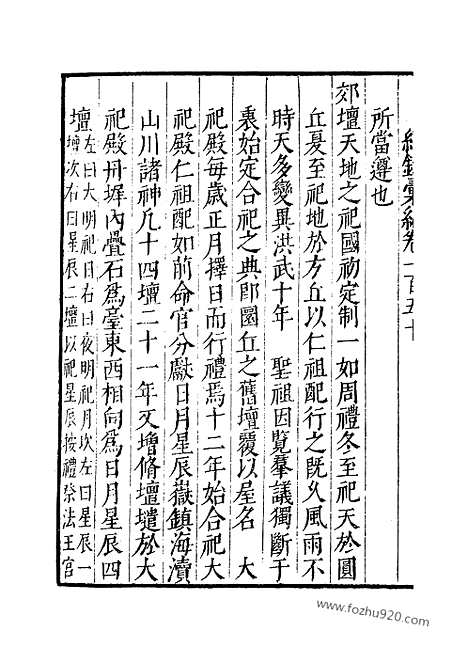 紀錄彙編卷一百五十
所當遵也
郊壇天地之祀國初定制一如周禮冬至祀天於圜
丘夏至祀地於方丘以仁祖配行之既久風雨不
時天多變異洪武十年　聖祖因覽羣議獨斷于
衷始定合祀之典即圜丘之舊壇覆以屋名　大
祀殿每歲正月擇日而行禮焉十二年始合祀大
祀殿仁祖配如前命官分獻日月星辰嶽鎮海瀆
山川諸神凡十四壇二十一年又增修壇壝於大
祀殿丹墀內疊石為臺東西相向為日月星辰四
壇左曰大明祀日右曰夜明祀月次左曰星辰一
壇次右曰星辰二壇以祀星辰按禮祭法王宮
www.fozhu920.com